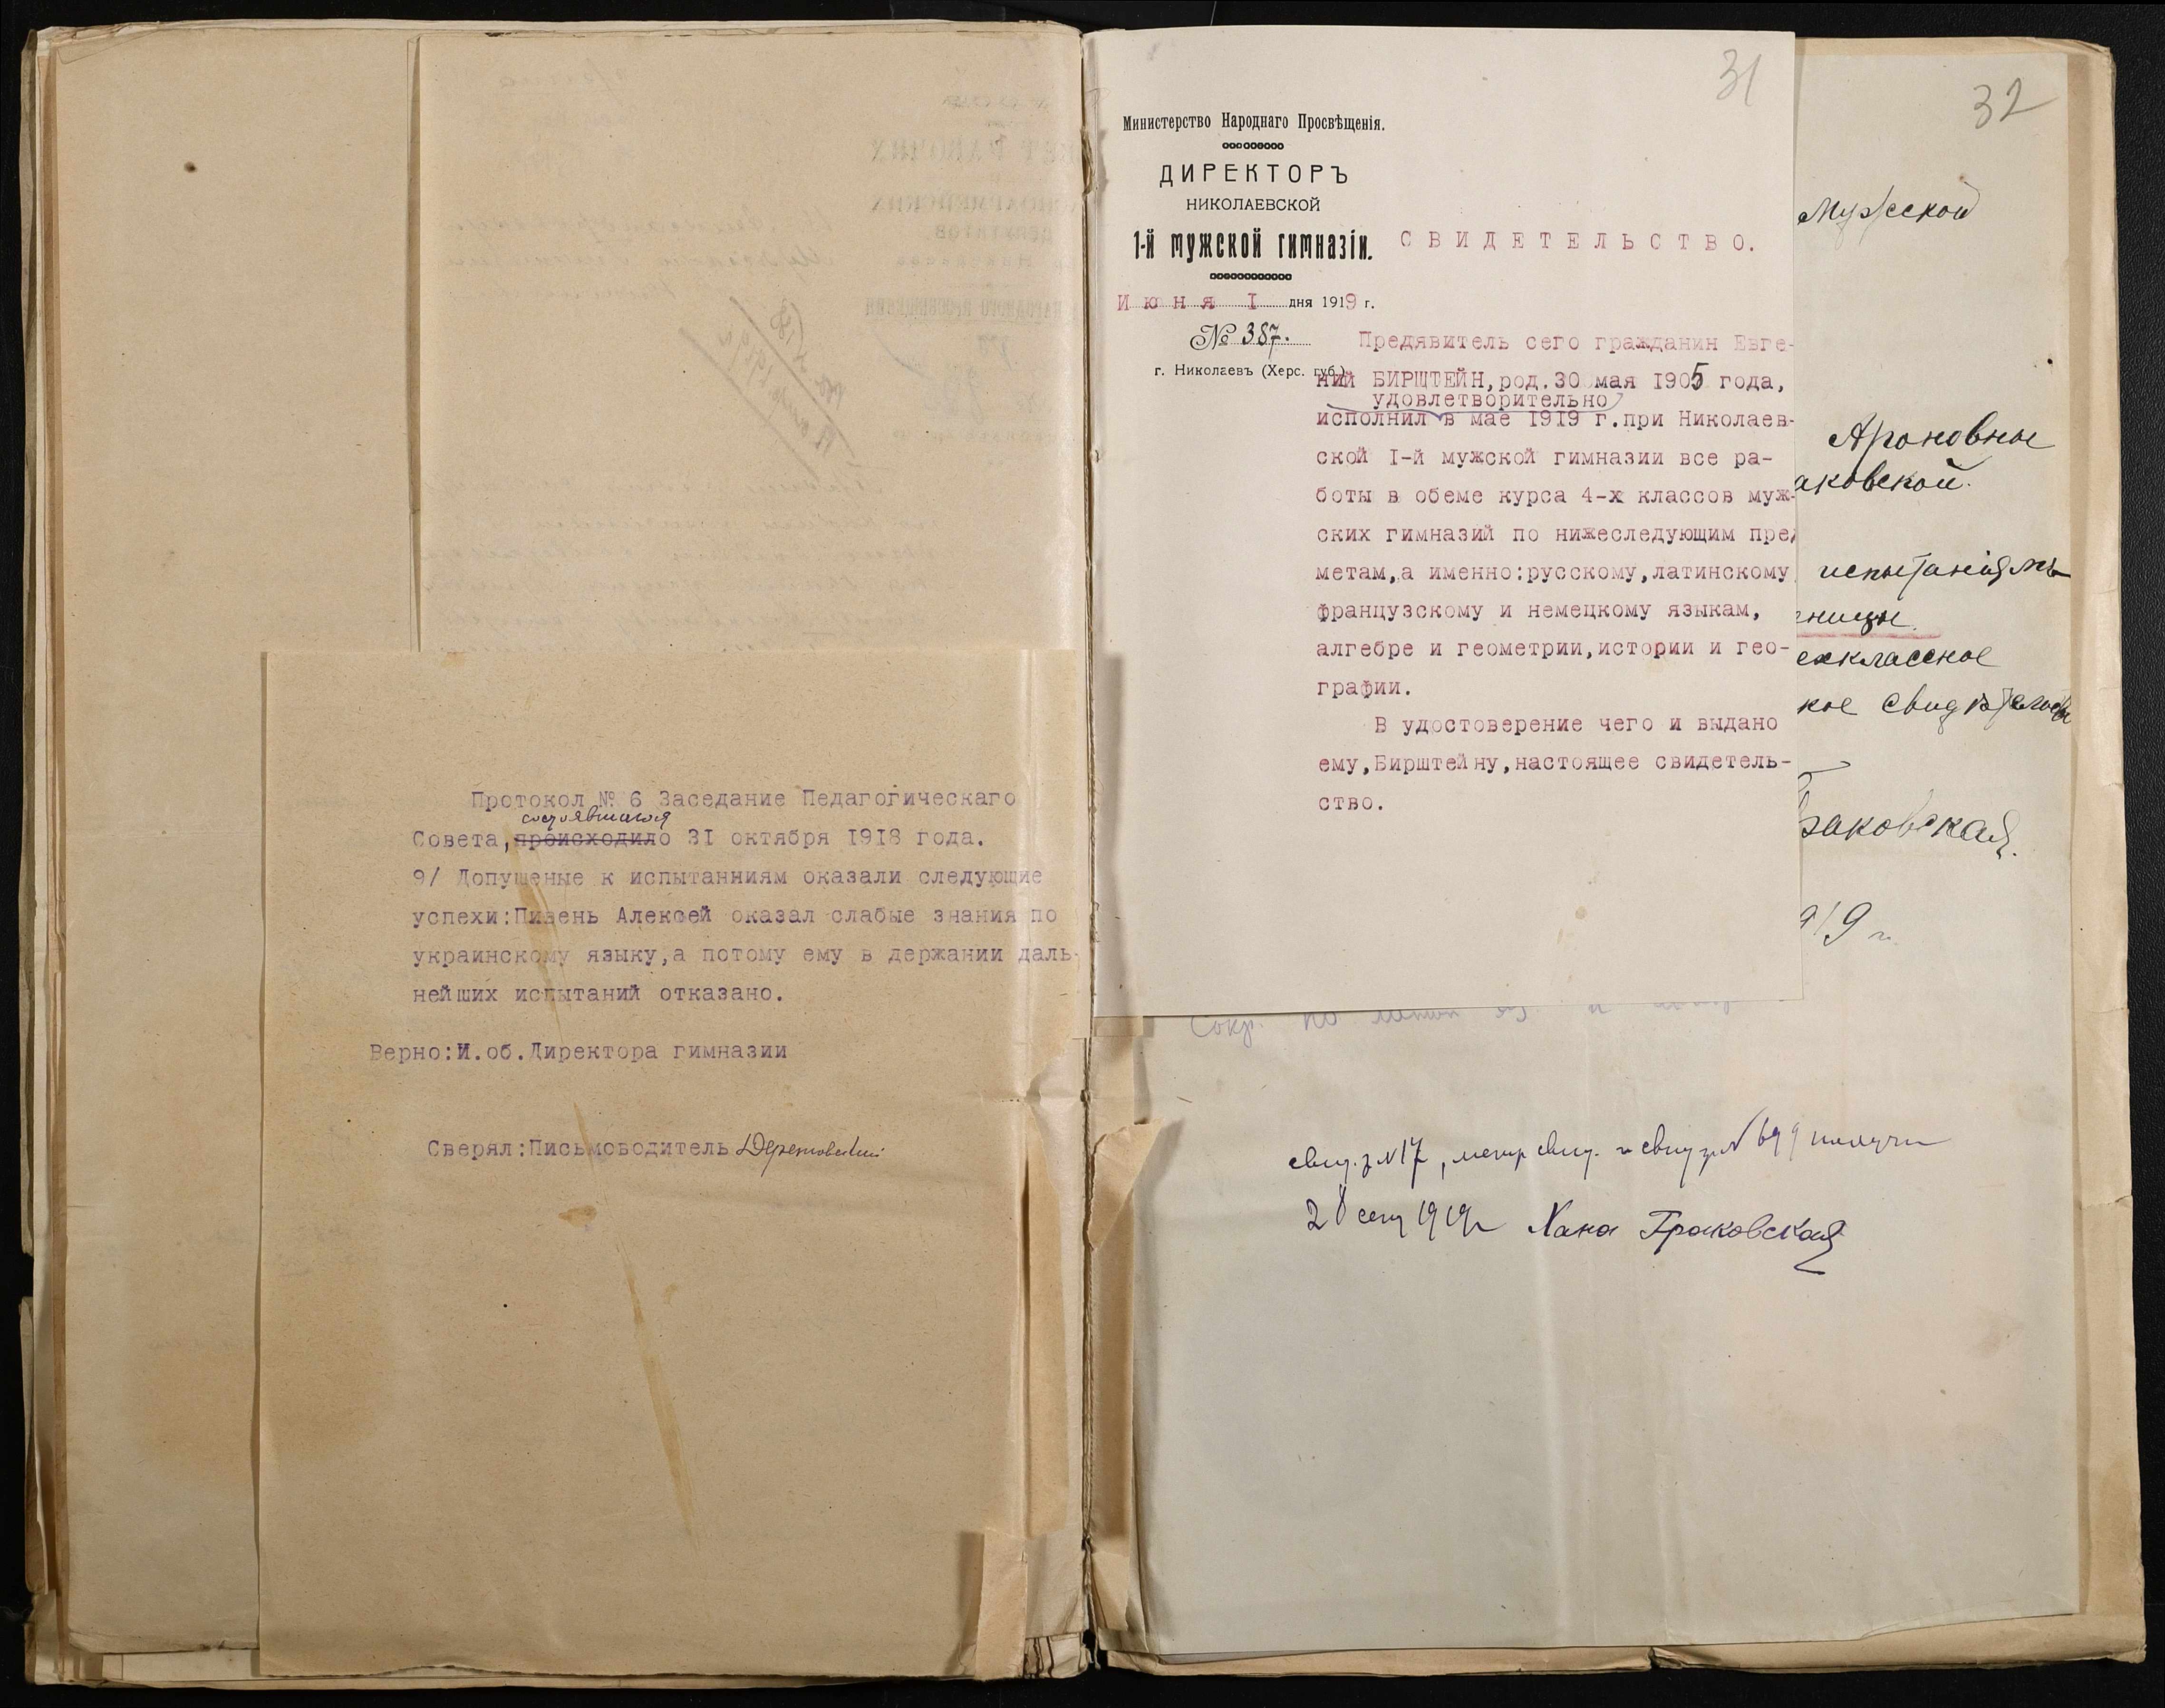 Протокол № 6 Заседание Педагогическаго
состоявшагося
Совета, происходило 31 октября 1918 года.
9/ Допущеные к испытанниям оказали следующие
успехи: Пивень Алексей оказал слабые знания по
украинскому языку, а потому ему в держании даль-
нейших испытаний отказано.
Верно: И. об. Директора гимназии
Сверял: Письмоводитель
31
Министерство Народнаго Просвѣщенія.
ДИРЕКТОРЪ
НИКОЛАЕВСКОЙ
1-й мужской гимназіи.
СВИДЕТЕЛЬСТВО.
Июня I дня 1919 г.
№ 387.
г. Николаевъ (Херс. губ.)
Предявитель сего гражданин Евге-
ний БИРШТЕЙН, род. 30 мая 1905 года,
удовлетворительно
исполнил в мае 1919 г. при Николаев-
ской I-й мужской гимназии все ра-
боты в обеме курса 4-х классов муж-
ских гимназий по нижеследующим пред
метам, а именно: русскому, латинскому
французскому и немецкому языкам,
алгебре и геометрии, истории и гео-
графии.
В удостоверение чего и выдано
ему, Бирштейну, настоящее свидетель-
ство.
32
Мужской
Ароновны
аковской.
испытаніямъ
еницы
ехклассное
кое свидѣтельс
раковская.
919 г.
свид. з №17, метр свид. и свид з № 699 получи
28 сент 1919 г Хана Граковская